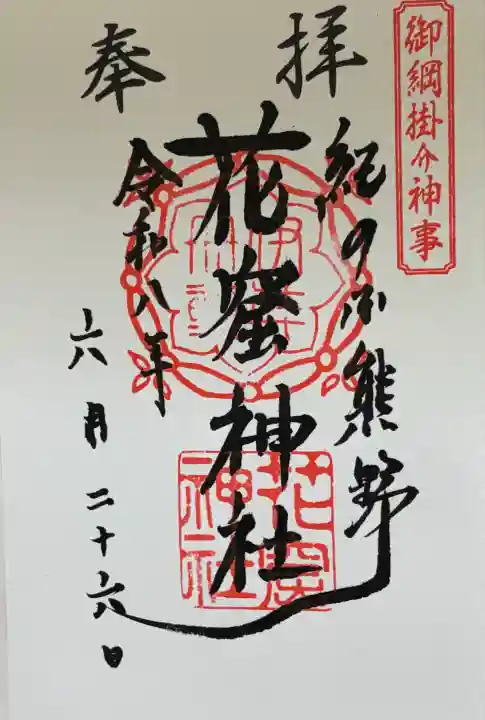 御綱掛介神事
奉拝
紀の国熊野
花窟神社
令和八年
六月二十六日
花窟
神社